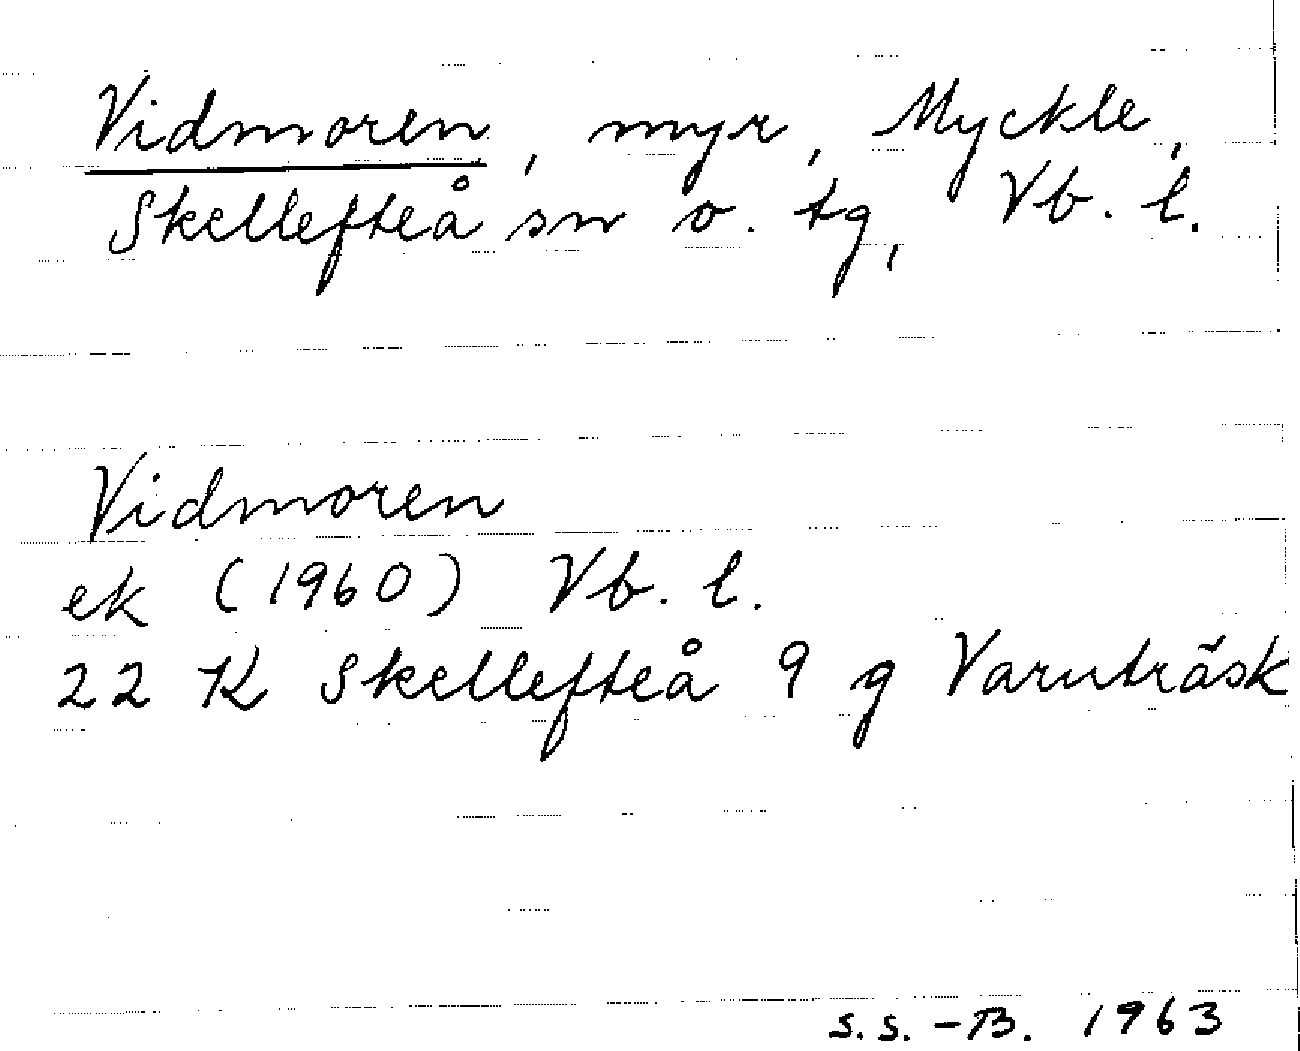 Vidmoren, myr, Myckle,
Skellefteå sn o. tg, Vb. l.
Vidmoren
ek (1960) Vb. l.
22 K Skellefteå 9 g Varuträsk
S.S.-B. 1963